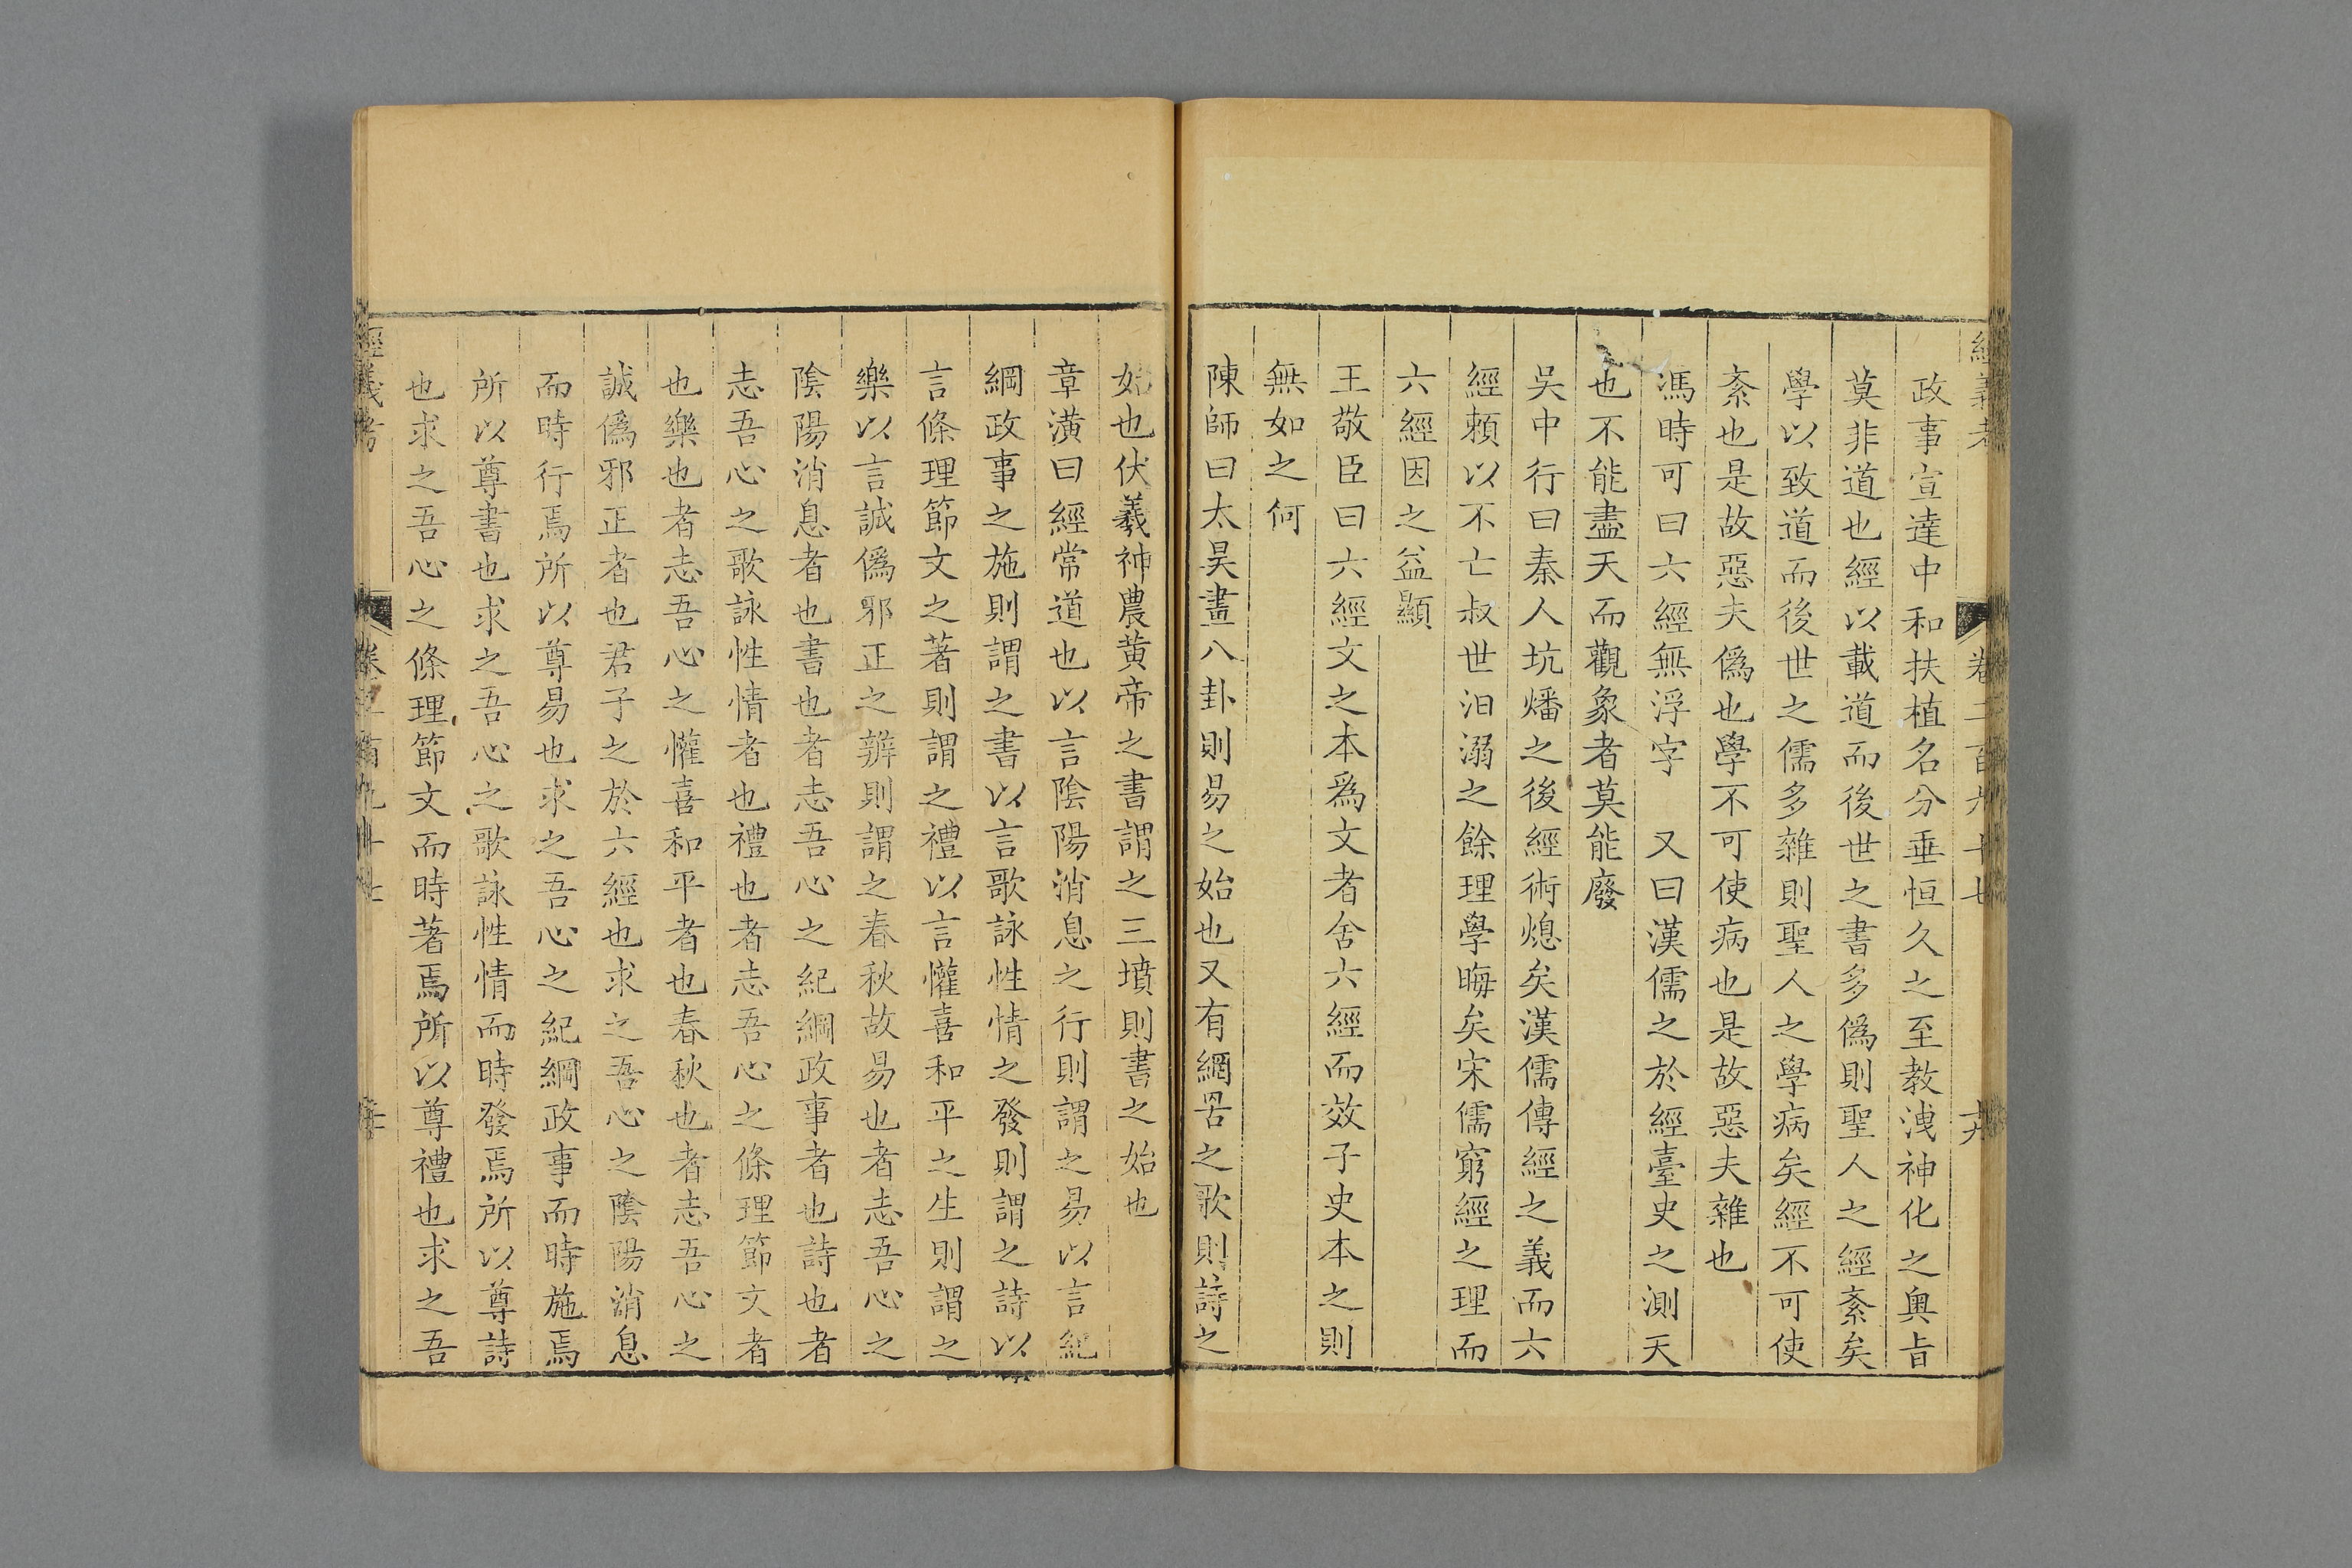 經義考 卷二百九十七 十九
政事宣達中和扶植名分垂恒久之至教洩神化之奧旨
莫非道也經以載道而後世之書多僞則聖人之經紊矣
學以致道而後世之儒多雜則聖人之學病矣經不可使
紊也是故惡夫僞也學不可使病也是故惡夫雜也
馮時可曰六經無浮字 又曰漢儒之於經臺史之測天
也不能盡天而觀象者莫能廢
吳中行曰秦人坑燔之後經術熄矣漢儒傳經之義而六
經賴以不亡叔世汩溺之餘理學晦矣宋儒窮經之理而
六經因之益顯
王敬臣曰六經文之本爲文者舍六經而效子史本之則
無如之何
陳師曰太昊畫八卦則易之始也又有網罟之歌則詩之
始也伏羲神農黃帝之書謂之三墳則書之始也
章潢曰經常道也以言陰陽消息之行則謂之易以言紀
綱政事之施則謂之書以言歌詠性情之發則謂之詩以
言條理節文之著則謂之禮以言懽喜和平之生則謂之
樂以言誠僞邪正之辨則謂之春秋故易也者志吾心之
陰陽消息者也書也者志吾心之紀綱政事者也詩也者
志吾心之歌詠性情者也禮也者志吾心之條理節文者
也樂也者志吾心之懽喜和平者也春秋也者志吾心之
誠僞邪正者也君子之於六經也求之吾心之陰陽消息
而時行焉所以尊易也求之吾心之紀綱政事而時施焉
所以尊書也求之吾心之歌詠性情而時發焉所以尊詩
也求之吾心之條理節文而時著焉所以尊禮也求之吾
經義考